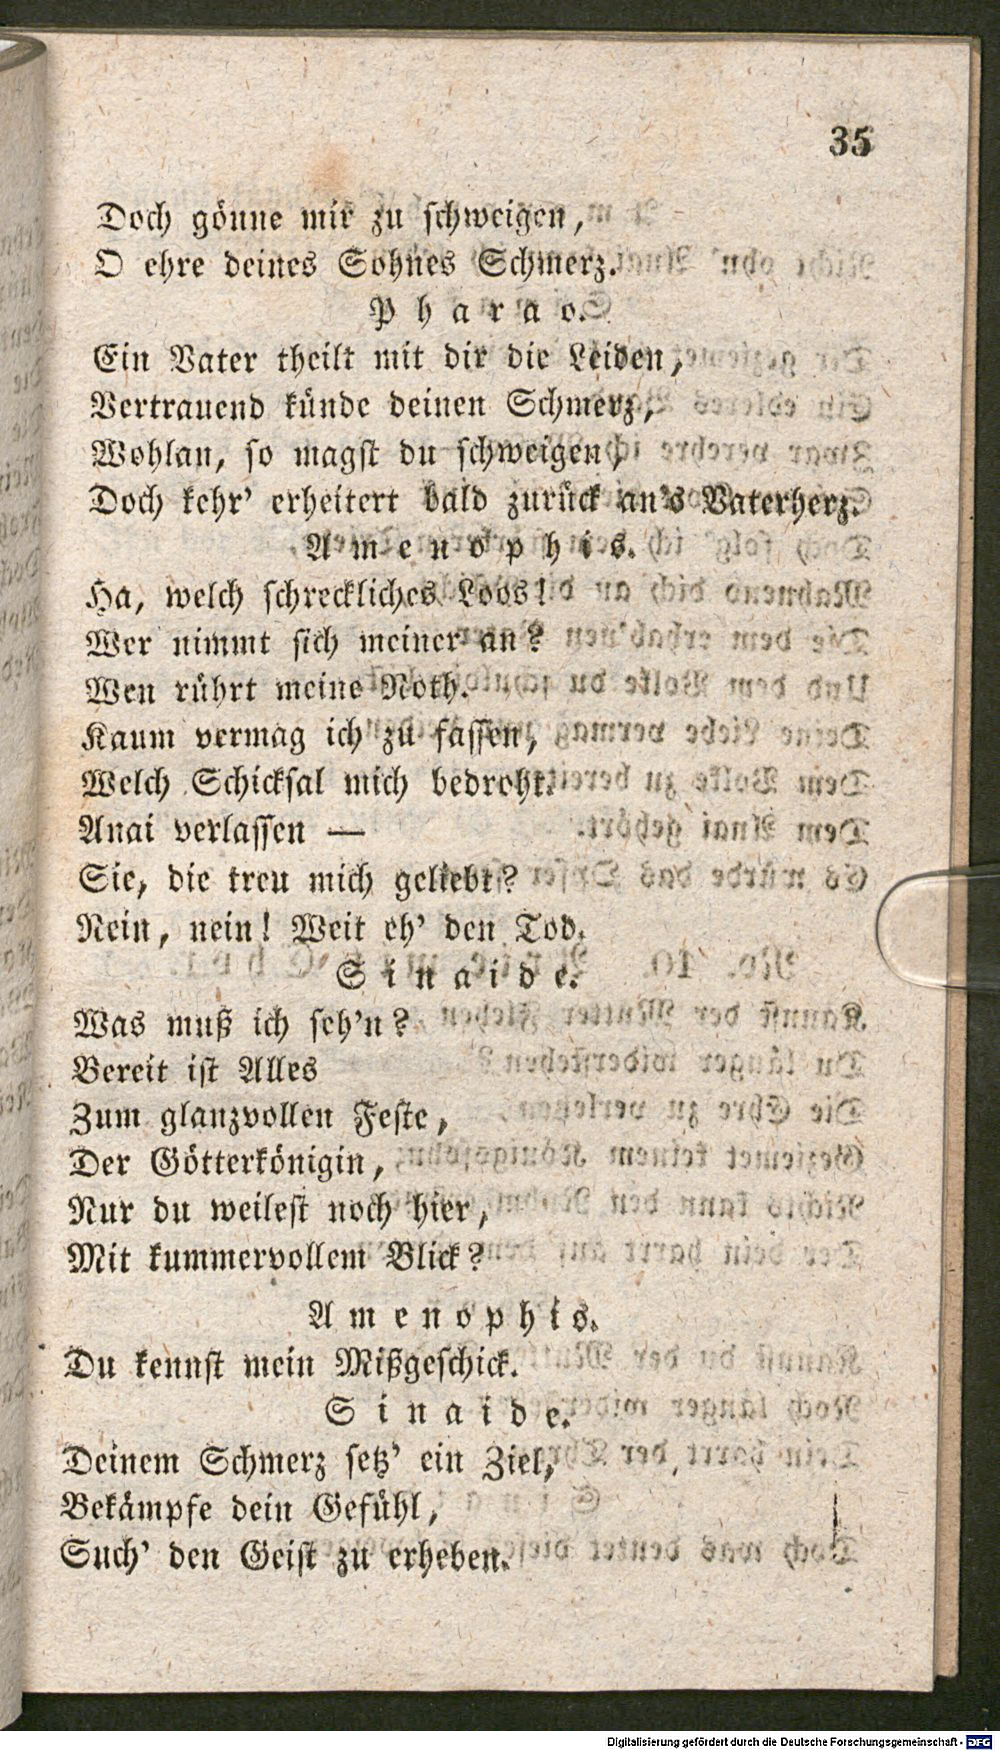 35
Doch gönne mir zu schweigen,
O ehre deines Sohnes Schmerz.
Pharao.
Ein Vater theilt mit dir die Leiden,
Vertrauend künde deinen Schmerz,
Wohlan, so magst du schweigen,
Doch kehr' erheitert bald zurück an's Vaterherz.
Amenophis.
Ha, welch schreckliches Loos!
Wer nimmt sich meiner an?
Wen rührt meine Noth.
Kaum vermag ich zu fassen,
Welch Schicksal mich bedroht.
Anai verlassen —
Sie, die treu mich geliebt?
Nein, nein! Weit eh' den Tod.
Sinaide.
Was muß ich seh'n?
Bereit ist Alles
Zum glanzvollen Feste,
Der Götterkönigin,
Nur du weilest noch hier,
Mit kummervollem Blick?
Amenophis.
Du kennst mein Mißgeschick.
Sinaide.
Deinem Schmerz setz' ein Ziel,
Bekämpfe dein Gefühl,
Such' den Geist zu erheben.
Digitalisierung gefördert durch die Deutsche Forschungsgemeinschaft - DFG